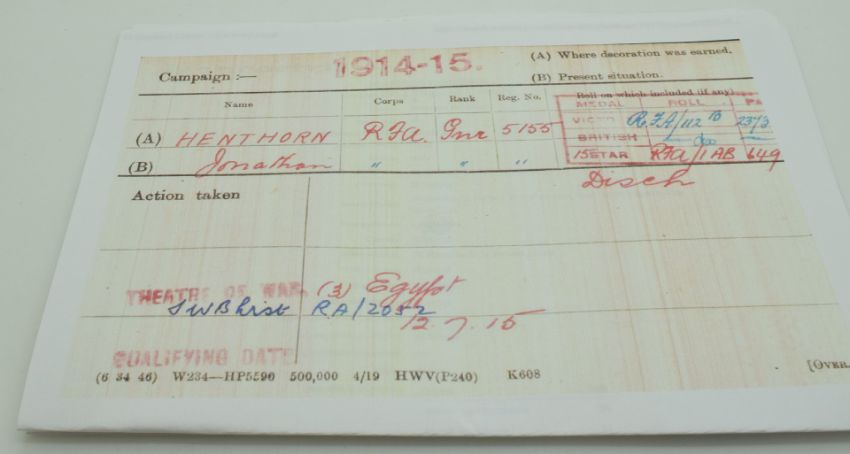 Campaign :— 1914-15. (A) Where decoration was earned.
(B) Present situation.
Name Corps Rank Reg. No. Roll on which included (if any)
MEDAL ROLL
(A) HENTHORN R.F.A. Gnr 5155 VICTO R.F.A/112 B 2373
BRITISH do
(B) Jonathan " " " 15 STAR RFA/1AB 649
Action taken Disch
THEATRE OF WAR. (3) Egypt
SWB list RA/2052
12.7.15
QUALIFYING DATE
(6 34 46) W234—HP5590 500,000 4/19 HWV(P240) K608 [OVER.